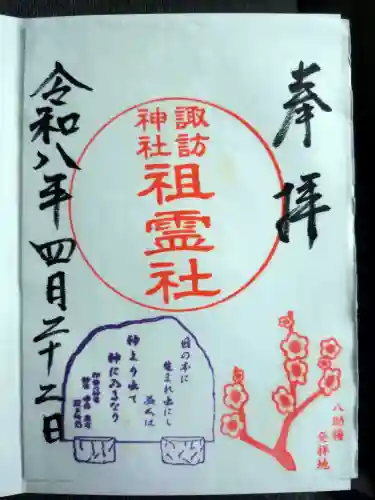 奉拝
諏訪
神社
祖霊社
令和八年四月二十二日
日の本に
生まれ出にし
益人は
神より出て
神に入るなり
発祥地